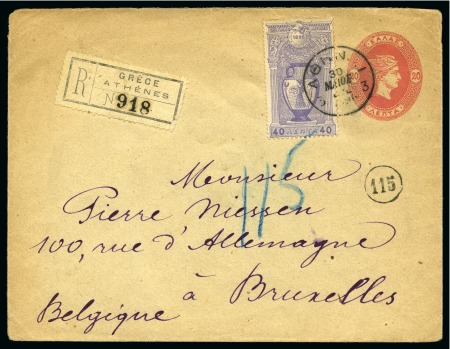 R
GRÈCE
ATHÈNES
N 918
1896
40 ΛΕΠΤΑ 40
30
ΜΑΙΟΣ
3
ΕΛΛΑΣ
20 20
ΛΕΠΤΑ
115
115
Monsieur
Pierre Niessen
100, rue d'Allemagne
à Bruxelles
Belgique